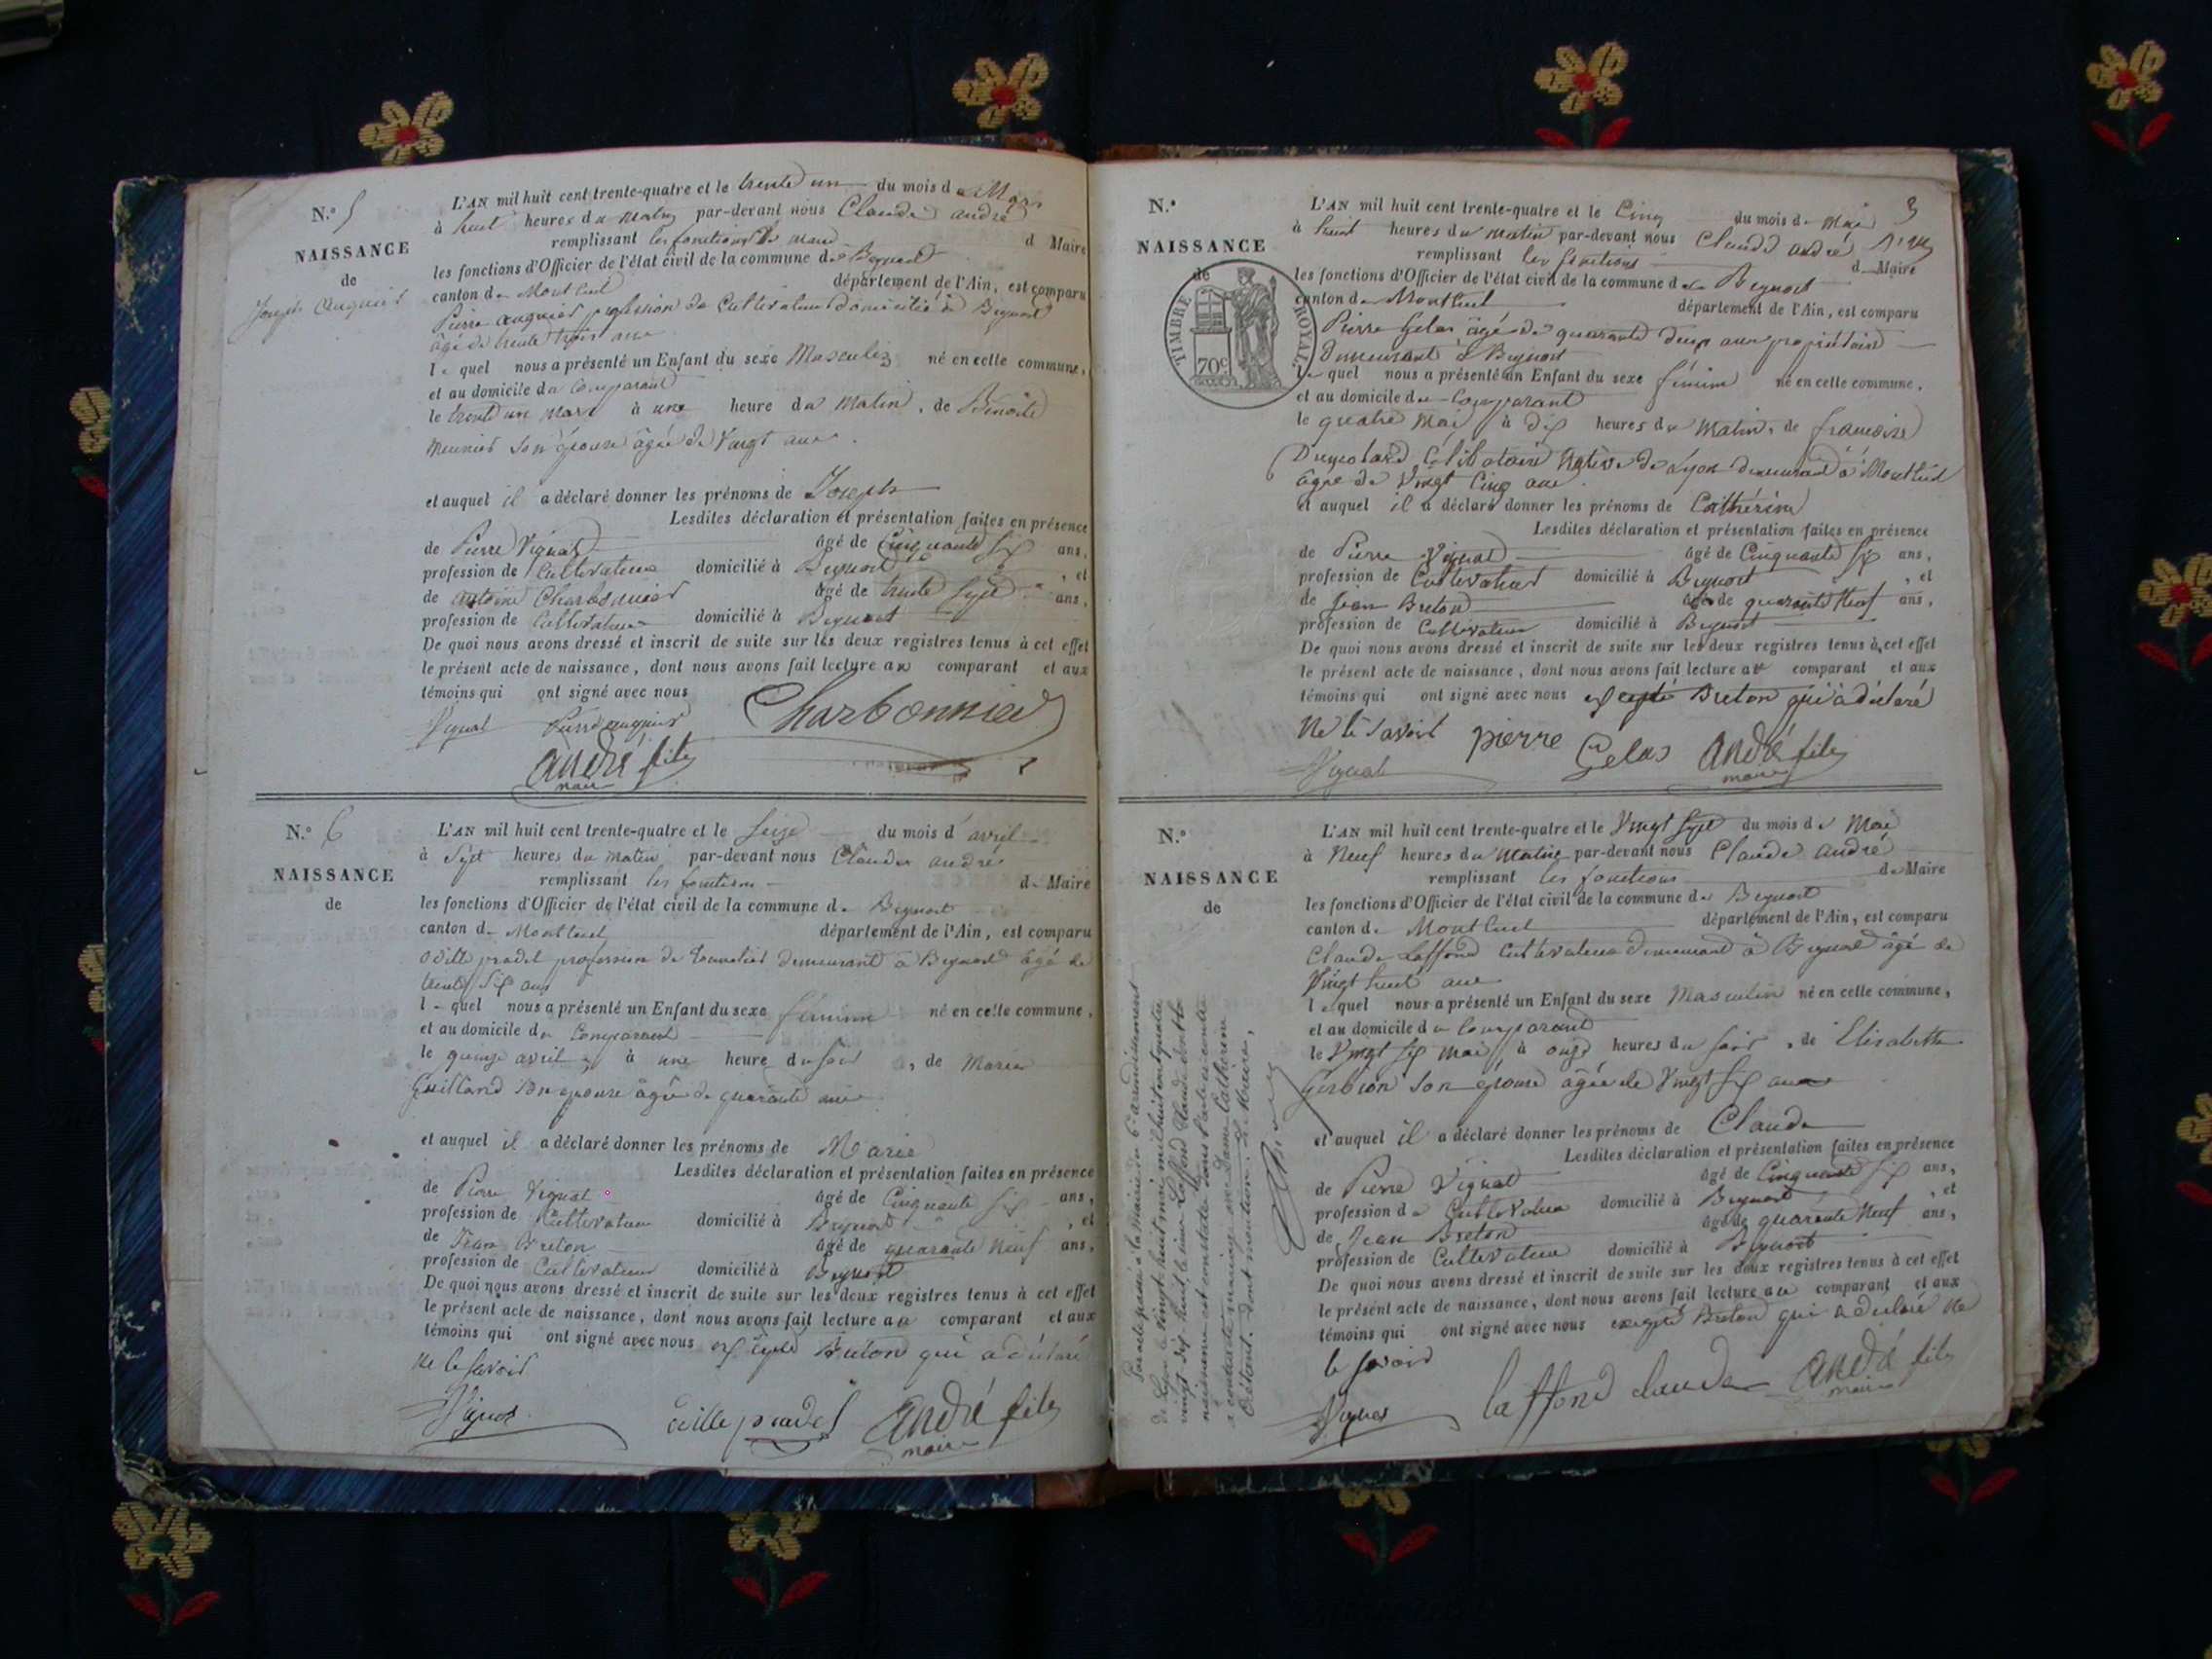 N.° 5
NAISSANCE
de
Joseph Auguier
L'AN mil huit cent trente-quatre et le trente un du mois de Mars
à huit heures du matin par-devant nous Claude andré
remplissant les fonctions de maire d Maire
les fonctions d'Officier de l'état civil de la commune de Beynost
canton de Montluel département de l'Ain, est comparu
Pierre auguier profession de Cultivateur domicilié à Beynost
âgé de trente trois ans
le quel nous a présenté un Enfant du sexe Masculin né en cette commune,
et au domicile du Comparant
le trente un mars à une heure du Matin, de Benoite
meunier son épouse âgée de Vingt ans
et auquel il a déclaré donner les prénoms de Joseph
Lesdites déclaration et présentation faites en présence
de Pierre Vignat âgé de Cinquante Six ans,
profession de Cultivateur domicilié à Beynost, et
de antoine Charbonnier âgé de trente Sept ans,
profession de Cultivateur domicilié à Beynost
De quoi nous avons dressé et inscrit de suite sur les deux registres tenus à cet effet
le présent acte de naissance, dont nous avons fait lecture au comparant et aux
témoins qui ont signé avec nous
Vignat Pierre auguier Charbonnier
André fils
maire
N.° 6
NAISSANCE
de
L'AN mil huit cent trente-quatre et le Seize du mois d'avril
à Sept heures du matin par-devant nous Claude andré
remplissant les fonctions de Maire
les fonctions d'Officier de l'état civil de la commune de Beynost
canton de Montluel département de l'Ain, est comparu
odille pradel profession de demeurant à Beynost âgé de
trente Six ans
le quel nous a présenté un Enfant du sexe féminin né en cette commune,
et au domicile du Comparant
le quinze avril à une heure du soir, de Marie
Guilland son épouse âgée de quarante ans
et auquel il a déclaré donner les prénoms de Marie
Lesdites déclaration et présentation faites en présence
de Pierre Vignat âgé de Cinquante Six ans,
profession de Cultivateur domicilié à Beynost, et
de Jean Breton âgé de quarante Neuf ans,
profession de Cultivateur domicilié à Beynost
De quoi nous avons dressé et inscrit de suite sur les deux registres tenus à cet effet
le présent acte de naissance, dont nous avons fait lecture au comparant et aux
témoins qui ont signé avec nous excepté Breton qui a déclaré
ne le savoir
Vignat odille pradel André fils
maire
3
N.°
NAISSANCE
de
TIMBRE ROYAL
70c
L'AN mil huit cent trente-quatre et le Cinq du mois de Mai
à huit heures du matin par-devant nous Claude andré
remplissant les fonctions d Maire
les fonctions d'Officier de l'état civil de la commune de Beynost
canton de Montluel département de l'Ain, est comparu
Pierre Gelas âgé de quarante deux ans propriétaire
demeurant à Beynost
le quel nous a présenté un Enfant du sexe féminin né en cette commune,
et au domicile du Comparant
le quatre Mai à dix heures du Matin, de françoise
Dumolard Célibataire Native de Lyon demeurant à Montluel
âgée de Vingt Cinq ans
et auquel il a déclaré donner les prénoms de Cathérine
Lesdites déclaration et présentation faites en présence
de Pierre Vignat âgé de Cinquante Six ans,
profession de Cultivateur domicilié à Beynost, et
de Jean Breton âgé de quarante Neuf ans,
profession de Cultivateur domicilié à Beynost
De quoi nous avons dressé et inscrit de suite sur les deux registres tenus à cet effet
le présent acte de naissance, dont nous avons fait lecture au comparant et aux
témoins qui ont signé avec nous excepté Breton qui a déclaré
Ne le savoir pierre Gelas André fils
Vignat maire
N.°
NAISSANCE
de
L'AN mil huit cent trente-quatre et le Vingt Sept du mois de Mai
à Neuf heures du Matin par-devant nous Claude andré
remplissant les fonctions de Maire
les fonctions d'Officier de l'état civil de la commune de Beynost
canton de Montluel département de l'Ain, est comparu
Claude Laffond Cultivateur demeurant à Beynost âgé de
Vingt huit ans
le quel nous a présenté un Enfant du sexe Masculin né en cette commune,
et au domicile du Comparant
le Vingt Six mai à onze heures du soir, de Elisabeth
Gerbion son épouse âgée de Vingt Six ans
et auquel il a déclaré donner les prénoms de Claude
Lesdites déclaration et présentation faites en présence
de Pierre Vignat âgé de Cinquante Six ans,
profession de Cultivateur domicilié à Beynost, et
de Jean Breton âgé de quarante Neuf ans,
profession de Cultivateur domicilié à Beynost
De quoi nous avons dressé et inscrit de suite sur les deux registres tenus à cet effet
le présent acte de naissance, dont nous avons fait lecture au comparant et aux
témoins qui ont signé avec nous excepté Breton qui a déclaré ne
le savoir
Vignat laffond claude André fils
maire
Par acte passé à la mairie du 6e arrondissement
de Lyon le vingt huit mai mil huit cent quatre
vingt dix huit, le sieur Laffond Claude dont la
naissance est constatée dans l'acte ci-contre
a contracté mariage avec Dame Catherine
Crétant. dont mention. Le Maire,